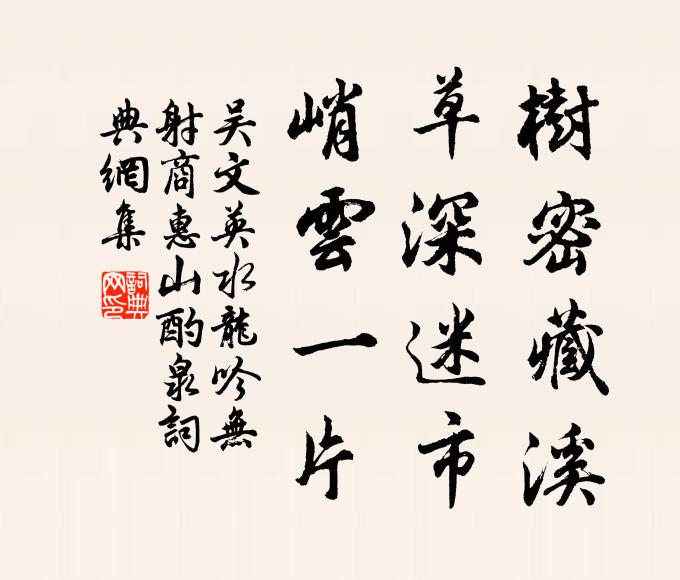 樹密藏溪
草深迷市
峭雲一片
吳文英水龍吟無
射商惠山酌泉詞
典網集
詞典網印